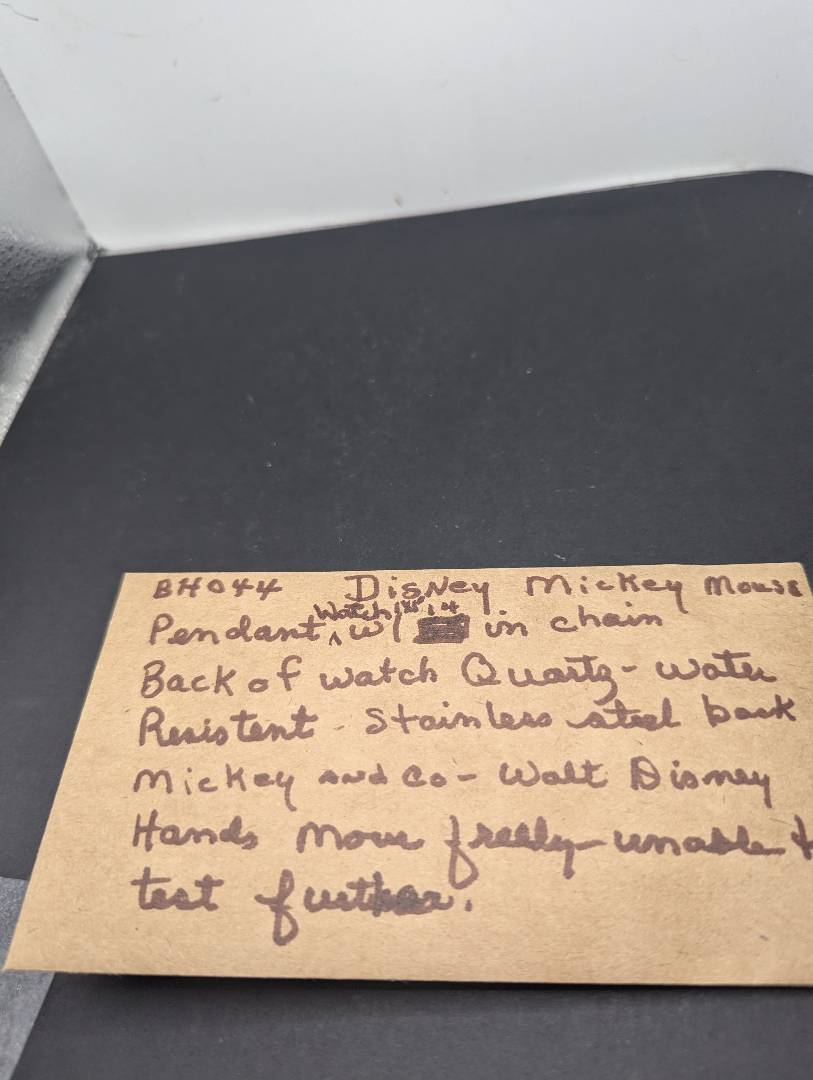 BH044 Disney Mickey Mouse
Pendant Watch w/ in chain
Back of watch Quartz - water
Resistent - Stainless steel back
Mickey and Co - Walt Disney
Hands move freely - unable t
test further.